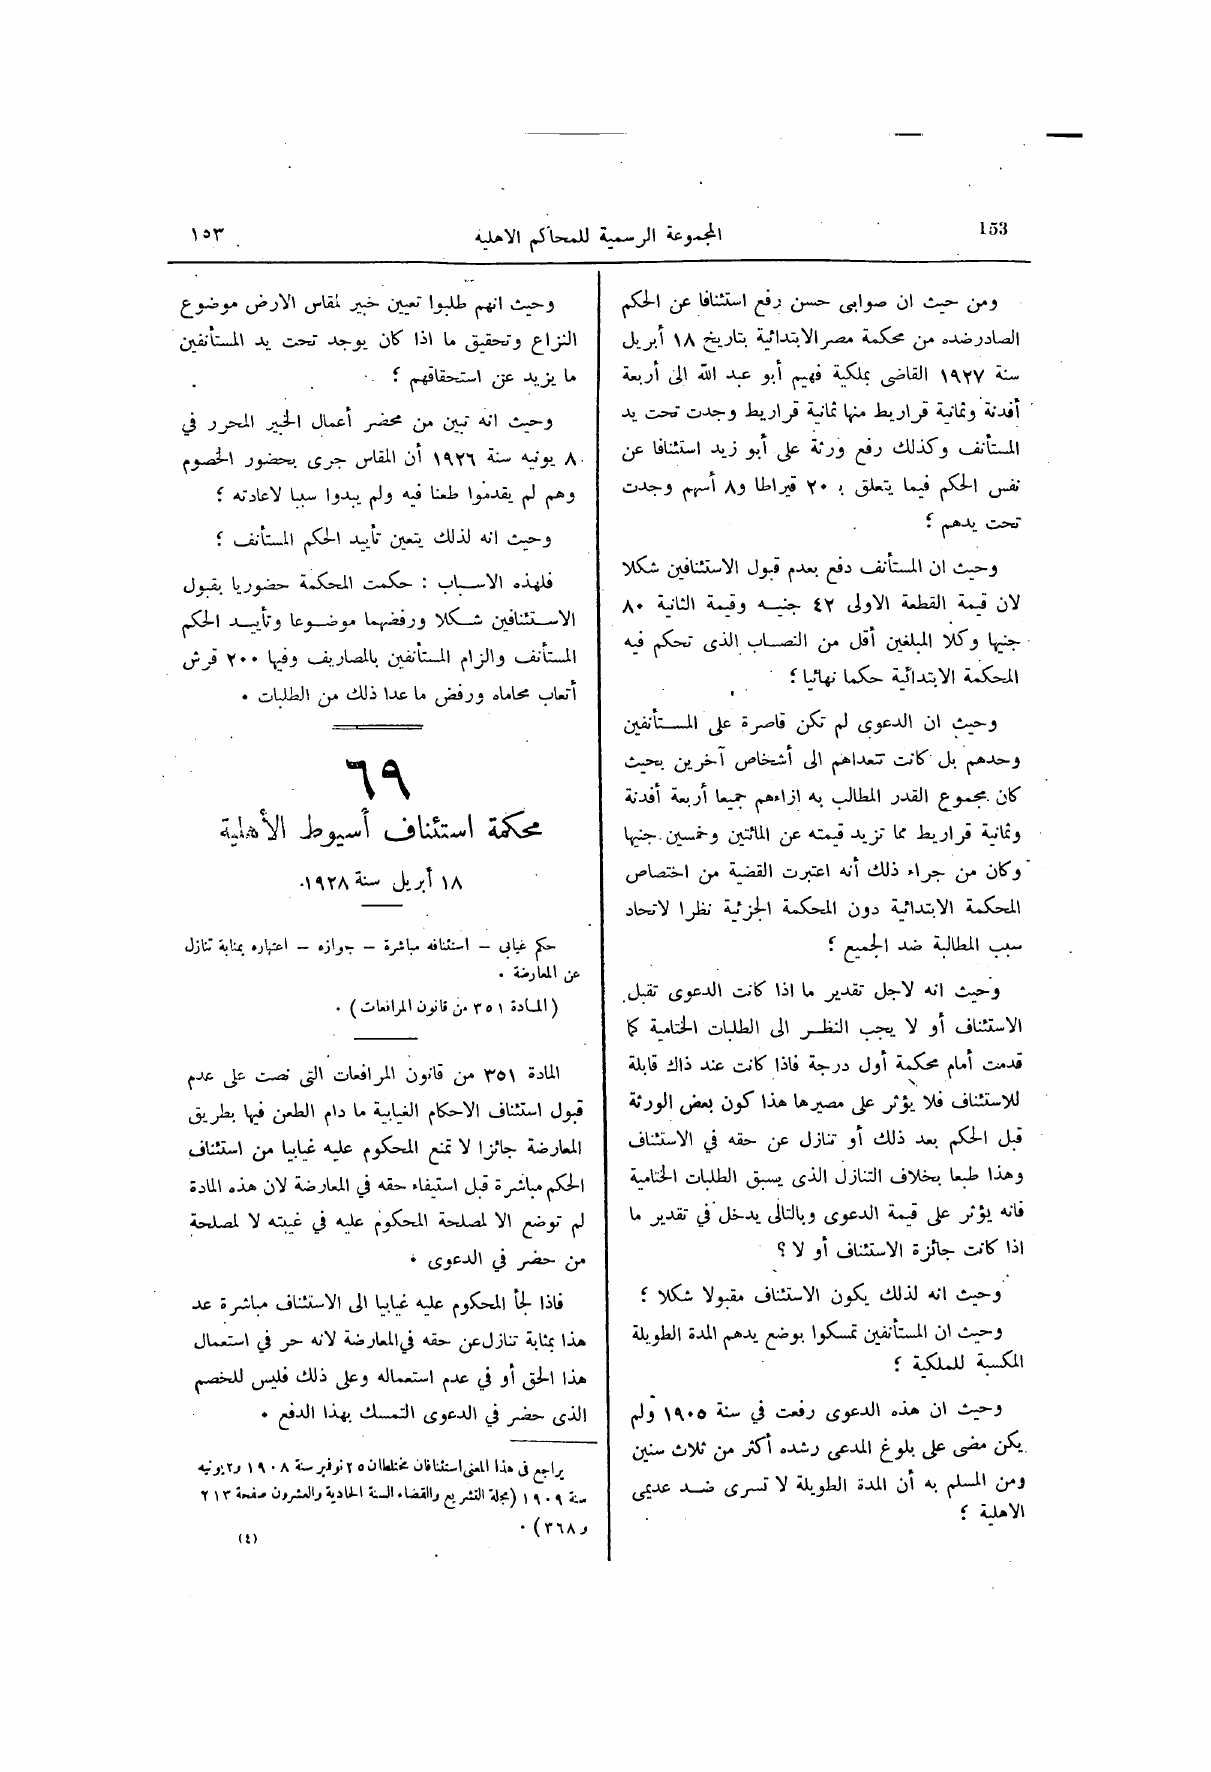 153
المجموعة الرسمية للمحاكم الاهلية
١٥٣
ومن حيث ان صوابى حسن رفع استئنافا عن الحكم
الصادر ضده من محكمة مصر الابتدائية بتاريخ ١٨ أبريل
سنة ١٩٢٧ القاضى بملكية فهيم أبو عبد الله الى أربعة
أفدنة وثمانية قراريط منها ثمانية قراريط وجدت تحت يد
المستأنف وكذلك رفع ورثة على أبو زيد استئنافا عن
نفس الحكم فيما يتعلق بـ ٢٠ قيراطا و٨ أسهم وجدت
تحت يدهم ؛
وحيث ان المستأنف دفع بعدم قبول الاستئنافين شكلا
لان قيمة القطعة الاولى ٤٢ جنيه وقيمة الثانية ٨٠
جنيها وكلا المبلغين أقل من النصاب الذى تحكم فيه
المحكمة الابتدائية حكما نهائيا ؛
وحيث ان الدعوى لم تكن قاصرة على المستأنفين
وحدهم بل كانت تتعداهم الى أشخاص آخرين بحيث
كان مجموع القدر المطالب به ازاءهم جميعا أربعة أفدنة
وثمانية قراريط مما تزيد قيمته عن المائتين وخمسين جنيها
وكان من جراء ذلك أنه اعتبرت القضية من اختصاص
المحكمة الابتدائية دون المحكمة الجزئية نظرا لاتحاد
سبب المطالبة ضد الجميع ؛
وحيث انه لاجل تقدير ما اذا كانت الدعوى تقبل
الاستئناف أو لا يجب النظر الى الطلبات الختامية كما
قدمت أمام محكمة أول درجة فاذا كانت عند ذاك قابلة
للاستئناف فلا يؤثر على مصيرها هذا كون بعض الورثة
قبل الحكم بعد ذلك أو تنازل عن حقه في الاستئناف
وهذا طبعا بخلاف التنازل الذى يسبق الطلبات الختامية
فانه يؤثر على قيمة الدعوى وبالتالى يدخل في تقدير ما
اذا كانت جائزة الاستئناف أو لا ؟
وحيث انه لذلك يكون الاستئناف مقبولا شكلا ؛
وحيث ان المستأنفين تمسكوا بوضع يدهم المدة الطويلة
المكسبة للملكية ؛
وحيث ان هذه الدعوى رفعت في سنة ١٩٠٥ ولم
يكن مضى على بلوغ المدعى رشده أكثر من ثلاث سنين
ومن المسلم به أن المدة الطويلة لا تسرى ضد عديمى
الاهلية ؛
وحيث انهم طلبوا تعيين خبير لمقاس الارض موضوع
النزاع وتحقيق ما اذا كان يوجد تحت يد المستأنفين
ما يزيد عن استحقاقهم ؛
وحيث انه تبين من محضر أعمال الخبير المحرر في
٨ يونيه سنة ١٩٢٦ أن المقاس جرى بحضور الخصوم
وهم لم يقدموا طعنا فيه ولم يبدوا سببا لاعادته ؛
وحيث انه لذلك يتعين تأييد الحكم المستأنف ؛
فلهذه الاسباب : حكمت المحكمة حضوريا بقبول
الاستئنافين شكلا ورفضهما موضوعا وتأييد الحكم
المستأنف والزام المستأنفين بالمصاريف وفيها ٢٠٠ قرش
أتعاب محاماه ورفض ما عدا ذلك من الطلبات .
٦٩
محكمة استئناف أسيوط الأهلية
١٨ أبريل سنة ١٩٢٨.
حكم غيابى – استئنافه مباشرة – جوازه – اعتباره بمثابة تنازل
عن المعارضة .
( المادة ٣٥١ من قانون المرافعات ) .
المادة ٣٥١ من قانون المرافعات التى نصت على عدم
قبول استئناف الاحكام الغيابية ما دام الطعن فيها بطريق
المعارضة جائزا لا تمنع المحكوم عليه غيابيا من استئناف
الحكم مباشرة قبل استيفاء حقه في المعارضة لان هذه المادة
لم توضع الا لمصلحة المحكوم عليه في غيبته لا لمصلحة
من حضر في الدعوى .
فاذا لجأ المحكوم عليه غيابيا الى الاستئناف مباشرة عد
هذا بمثابة تنازل عن حقه في المعارضة لانه حر في استعمال
هذا الحق أو في عدم استعماله وعلى ذلك فليس للخصم
الذى حضر في الدعوى التمسك بهذا الدفع .
يراجع فى هذا المعنى استئنافان مختلطان ٢٥ نوفمبر سنة ١٩٠٨ و٢ يونيه
سنة ١٩٠٩ (مجلة التشريع والقضاء السنة الحادية والعشرون صفحة ٢١٣
و ٣٦٨) .
(٤)